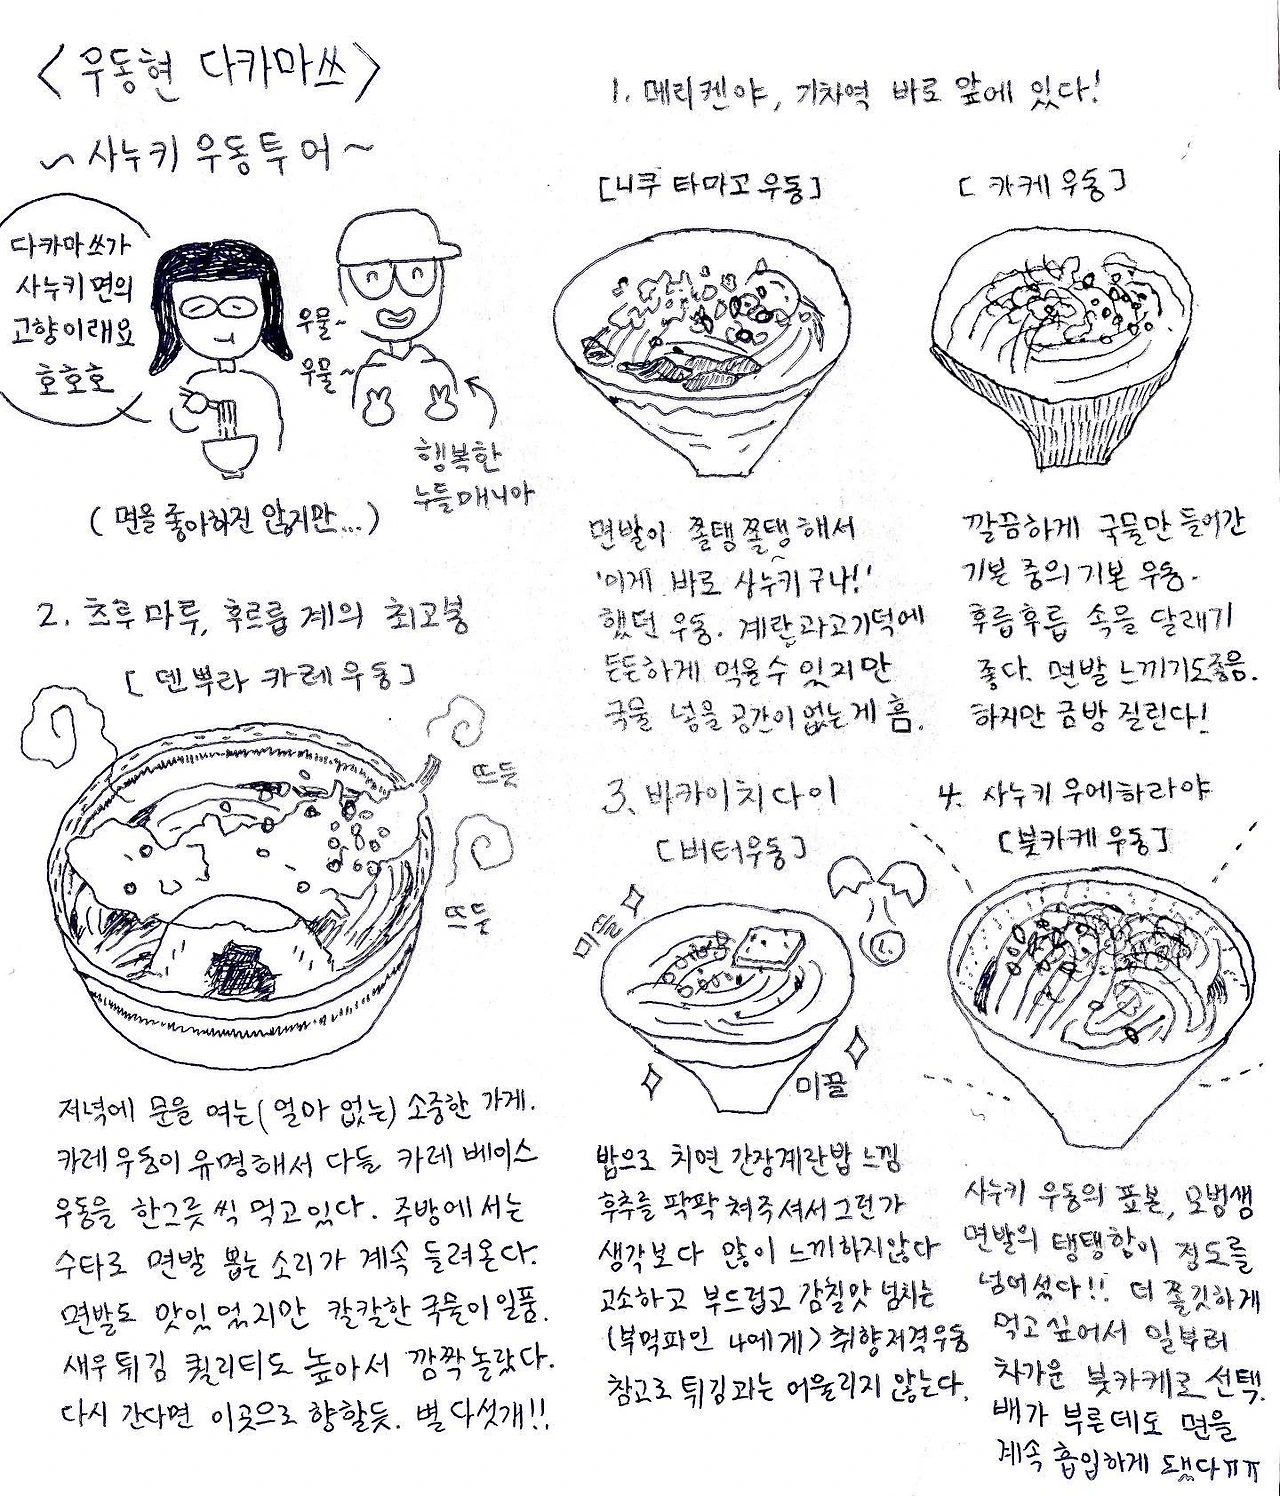 <우동현 다카마쓰>
~사누키 우동투어~
다카마쓰가
사누키면의
고향이래요
호호호
우물~
우물~
행복한
누들매니아
(면을 좋아하진 않지만...)
1. 메리켄야, 기차역 바로 앞에 있다!
[니쿠 타마고 우동]
면발이 쫄탱쫄탱해서
'이게 바로 사누키구나!'
했던 우동. 계란과고기덕에
든든하게 먹을수 있지만
국물 넣을 공간이 없는게 흠.
[카케 우동]
깔끔하게 국물만 들어간
기본 중의 기본 우동.
후릅후릅 속을 달래기
좋다. 면발 느끼기도좋음.
하지만 금방 질린다!
2. 츠루 마루, 후르릅 계의 최고봉
[덴뿌라 카레우동]
뜨듯
뜨듯
저녁에 문을 여는(얼마 없는) 소중한 가게.
카레우동이 유명해서 다들 카레 베이스
우동을 한그릇씩 먹고있다. 주방에서는
수타로 면발 뽑는 소리가 계속 들려온다.
면발도 맛있었지만 칼칼한 국물이일품.
새우튀김 퀄리티도 높아서 깜짝놀랐다.
다시 간다면 이곳으로 향할듯. 별 다섯개!!
3. 바카이치다이
[버터우동]
미끌
미끌
밥으로 치면 간장계란밥 느낌
후추를 팍팍 쳐주셔서그런가
생각보다 많이 느끼하지않다
고소하고 부드럽고 감칠맛 넘치는
(부먹파인 나에게) 취향저격우동
참고로 튀김과는 어울리지 않는다.
4. 사누키 우에하라야
[붓카케 우동]
사누키 우동의 표본, 모범생
면발의 탱탱함이 정도를
넘어섰다!! 더 쫄깃하게
먹고싶어서 일부러
차가운 붓카케로 선택.
배가 부른데도 면을
계속 흡입하게 됐다ㅠㅠ